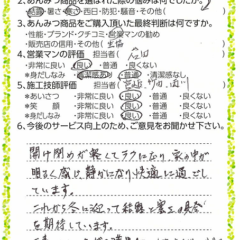 ・暑さ・寒さ・西日・防犯・騒音・その他(
3.あんみつ商品をご購入頂いた最終判断は何ですか。
・性能・ブランド・クチコミ・営業マンの勧め
・販売店の信用・その他(
4.営業マンの評価 担当者(
*あいさつ ・非常に良い・良い・普通・良くない
*身だしなみ ・清潔感あり・普通・清潔感なし
5.施工技師評価 担当者(
*あいさつ ・非常に良い・良い・普通・良くない
*笑顔 ・非常に良い・良い・普通・良くない
*身だしなみ ・非常に良い・良い・普通・良くない
6.今後のサービス向上のため、ご意見をお聞かせ下さい。
開け閉めが軽くてラクになり、家の中が
明るく感じ静かになり快適に過ごし
ています。
これから冬に迎って結露と寒さの具合
を期待しています。